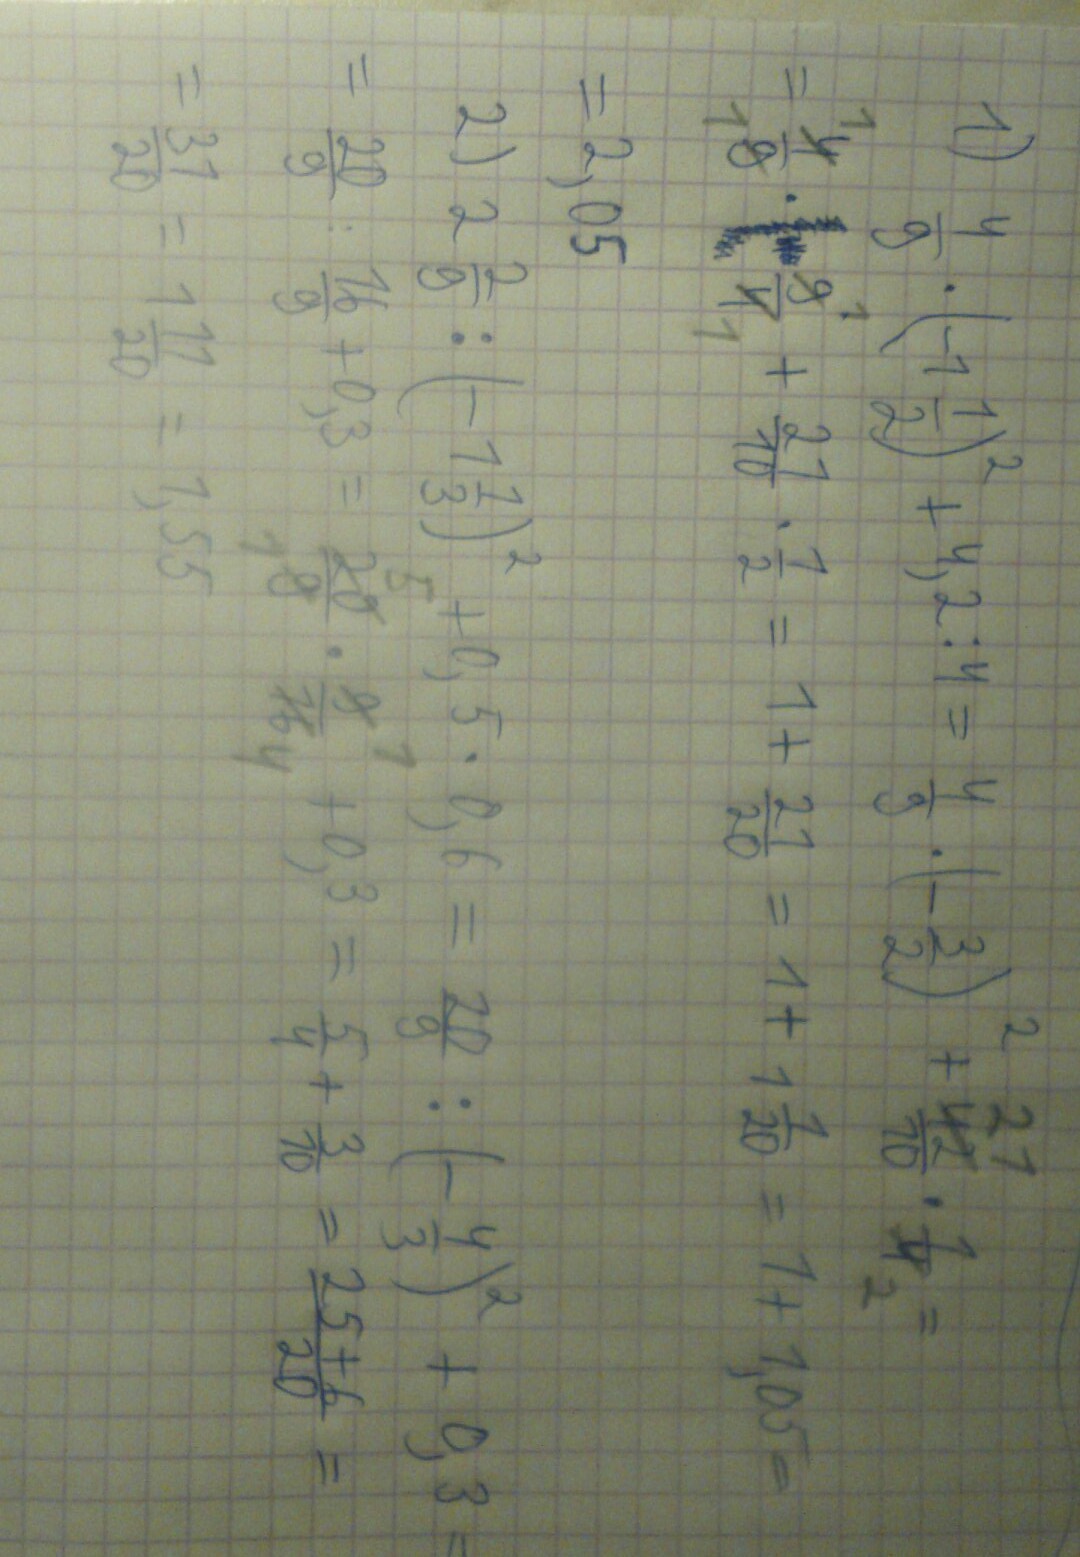 1) 4/9 · (-1 1/2)² + 4,2 : 4 = 4/9 · (-3/2)² + 42/10 21 · 1/4 2 =
= 4/9 1 1 · 9/4 1 1 + 21/10 · 1/2 = 1 + 21/20 = 1 + 1 1/20 = 1 + 1,05 =
= 2,05
2) 2 2/9 : (-1 1/3)² + 0,5 · 0,6 = 20/9 : (-4/3)² + 0,3 =
= 20/9 : 16/9 + 0,3 = 20/9 5 1 · 9/16 1 4 + 0,3 = 5/4 + 3/10 = 25+6/20 =
= 31/20 = 1 11/20 = 1,55